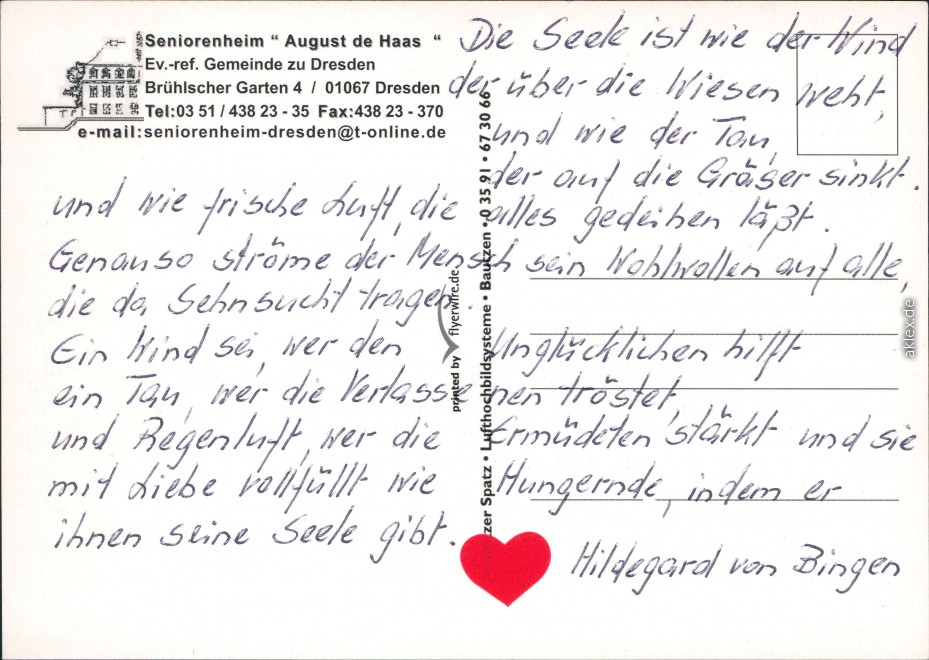 Seniorenheim “ August de Haas “
Ev.-ref. Gemeinde zu Dresden
Brühlscher Garten 4 / 01067 Dresden
Tel:03 51 / 438 23 - 35 Fax:438 23 - 370
e-mail:seniorenheim-dresden@t-online.de
Die Seele ist wie der Wind
der über die Wiesen weht,
und wie der Tau,
der auf die Gräser sinkt.
und wie frische Luft, die alles gedeihen läßt.
Genauso ströme der Mensch sein Wohlwollen auf alle,
die da Sehnsucht tragen.
Ein Wind sei, wer den Unglücklichen hilft
ein Tau, wer die Verlassenen tröstet,
und Regenluft, wer die Ermüdeten stärkt und sie
mit Liebe vollfüllt wie Hungernde, indem er
ihnen seine Seele gibt.
Hildegard von Bingen
printed by flyerwire.de
zer Spatz • Lufthochbildsysteme • Bautzen • 0 35 91 • 67 30 66
aklex.de